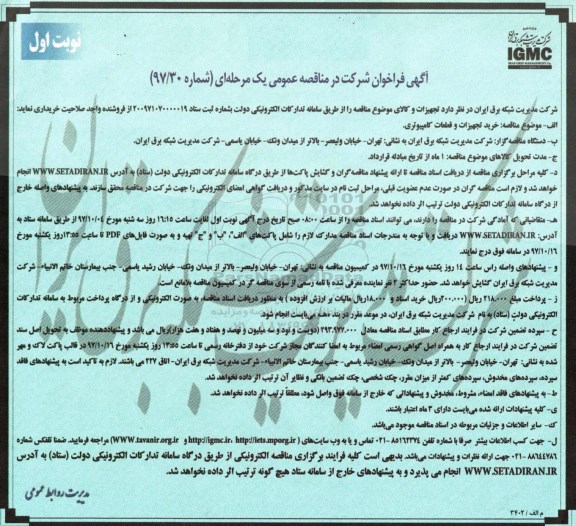 نوبت اول
شرکت مدیریت شبکه برق ایران
IGMC
IRAN GRID MANAGEMENT CO.
آگهی فراخوان شرکت در مناقصه عمومی یک مرحله‌ای (شماره ۹۷/۳۰)
شرکت مدیریت شبکه برق ایران در نظر دارد تجهیزات و کالای موضوع مناقصه را از طریق سامانه تدارکات الکترونیکی دولت بشماره ثبت ستاد ۲۰۰۹۷۱۰۷۰۰۰۰۰۱۹ از فروشنده واجد صلاحیت خریداری نماید:
الف- موضوع مناقصه: خرید تجهیزات و قطعات کامپیوتری.
ب- دستگاه مناقصه‌گزار: شرکت مدیریت شبکه برق ایران به نشانی: تهران- خیابان ولیعصر- بالاتر از میدان ونک- خیابان یاسمی- شرکت مدیریت شبکه برق ایران.
ج- مدت تحویل کالاهای موضوع مناقصه: ۱ ماه از تاریخ مبادله قرارداد.
د- کلیه مراحل برگزاری مناقصه از دریافت اسناد مناقصه تا ارائه پیشنهاد مناقصه‌گران و گشایش پاکت‌ها از طریق درگاه سامانه تدارکات الکترونیکی دولت (ستاد) به آدرس WWW.SETADIRAN.IR انجام
خواهد شد و لازم است مناقصه گران در صورت عدم عضویت قبلی، مراحل ثبت نام در سایت مذکور و دریافت گواهی امضای الکترونیکی را جهت شرکت در مناقصه محقق سازند. به پیشنهادهای واصله خارج
از درگاه سامانه تدارکات الکترونیکی دولت ترتیب اثر داده نخواهد شد.
ه- متقاضیانی که آمادگی شرکت در مناقصه را دارند، می توانند اسناد مناقصه را از ساعت ۰۸:۰۰ صبح تاریخ درج آگهی نوبت اول لغایت ساعت ۱۶:۱۵ روز سه شنبه مورخ ۹۷/۱۰/۰۴ از طریق سامانه ستاد به
آدرس: WWW.SETADIRAN.IR دریافت و با توجه به مندرجات اسناد مناقصه مدارک لازم را شامل پاکت‌های "الف"، "ب" و "ج" تهیه و به صورت فایل‌های PDF تا ساعت ۱۳:۵۵ روز یکشنبه مورخ
۹۷/۱۰/۱۶ در سامانه فوق درج نمایند.
و - پیشنهادهای واصله راس ساعت ۱۴ روز یکشنبه مورخ ۹۷/۱۰/۱۶ در کمیسیون مناقصه به نشانی: تهران- خیابان ولیعصر- بالاتر از میدان ونک- خیابان رشید یاسمی- جنب بیمارستان خاتم الانبیاء- شرکت
مدیریت شبکه برق ایران گشایش خواهد شد. حضور حداکثر ۲ نفر نماینده معرفی شده با نامه رسمی از سوی مناقصه گر در کمیسیون مناقصه بلامانع است.
ز - پرداخت مبلغ ۲۱۸.۰۰۰ ریال (۲۰۰.۰۰۰ریال خرید اسناد و ۱۸.۰۰۰ریال مالیات بر ارزش افزوده ) به منظور دریافت اسناد مناقصه، به صورت الکترونیکی و از درگاه پرداخت مربوط به سامانه تدارکات
الکترونیکی دولت (ستاد) به نام شرکت مدیریت شبکه برق ایران، در موعد مقرر در بند «ه» می‌بایست انجام شود.
ح - سپرده تضمین شرکت در فرایند ارجاع کار مطابق اسناد مناقصه معادل ۲۹۳.۹۷۷.۰۰۰ (دویست و نود و سه میلیون و نهصد و هفتاد و هفت هزار)ریال می باشد و پیشنهاددهنده موظف به تحویل اصل سند
تضمین شرکت در فرایند ارجاع کار به همراه اصل گواهی رسمی امضاء مربوط به امضا کنندگان مجاز شرکت خود از دفترخانه رسمی تا ساعت ۱۳:۵۵ روز یکشنبه مورخ ۹۷/۱۰/۱۶ در قالب پاکت لاک و مهر
شده به نشانی: تهران- خیابان ولیعصر- بالاتر از میدان ونک- خیابان رشید یاسمی- جنب بیمارستان خاتم الانبیاء- شرکت مدیریت شبکه برق ایران- اتاق ۲۲۷ می باشند. لازم به تاکید است به پیشنهادهای فاقد
سپرده، سپرده‌های مخدوش، سپرده‌های کمتر از میزان مقرر، چک شخصی، چک تضمین بانکی و نظایر آن ترتیب اثر داده نخواهد شد.
ط- به پیشنهادهای فاقد امضاء، مشروط، مخدوش و پیشنهاداتی که خارج از سامانه فوق واصل شود، مطلقاً ترتیب اثر داده نخواهد شد.
ی- کلیه پیشنهادات ارائه شده می‌بایست دارای ۳ ماه اعتبار باشند.
ک- سایر اطلاعات و جزئیات مربوطه در اسناد مناقصه موجود می‌باشد.
ل- جهت کسب اطلاعات بیشتر صرفا با شماره تلفن ۸۵۱۶۲۳۷۴-۰۲۱ تماس و یا به وب سایت‌های ( http://iets.mporg.ir ،http://igmc.ir و WWW.tavanir.org.ir) مراجعه فرمایید. ضمنا تلفکس شماره
۸۸۱۴۴۷۸۶-۰۲۱ جهت ارائه نظرات و پیشنهادات می‌باشد. بدیهی است کلیه فرایند برگزاری مناقصه الکترونیکی از طریق درگاه سامانه تدارکات الکترونیکی دولت (ستاد) به آدرس
WWW.SETADIRAN.IR انجام می پذیرد و به پیشنهادهای خارج از سامانه ستاد هیچ گونه ترتیب اثر داده نخواهد شد.
مدیریت روابط عمومی
م الف / ۳۴۰۲